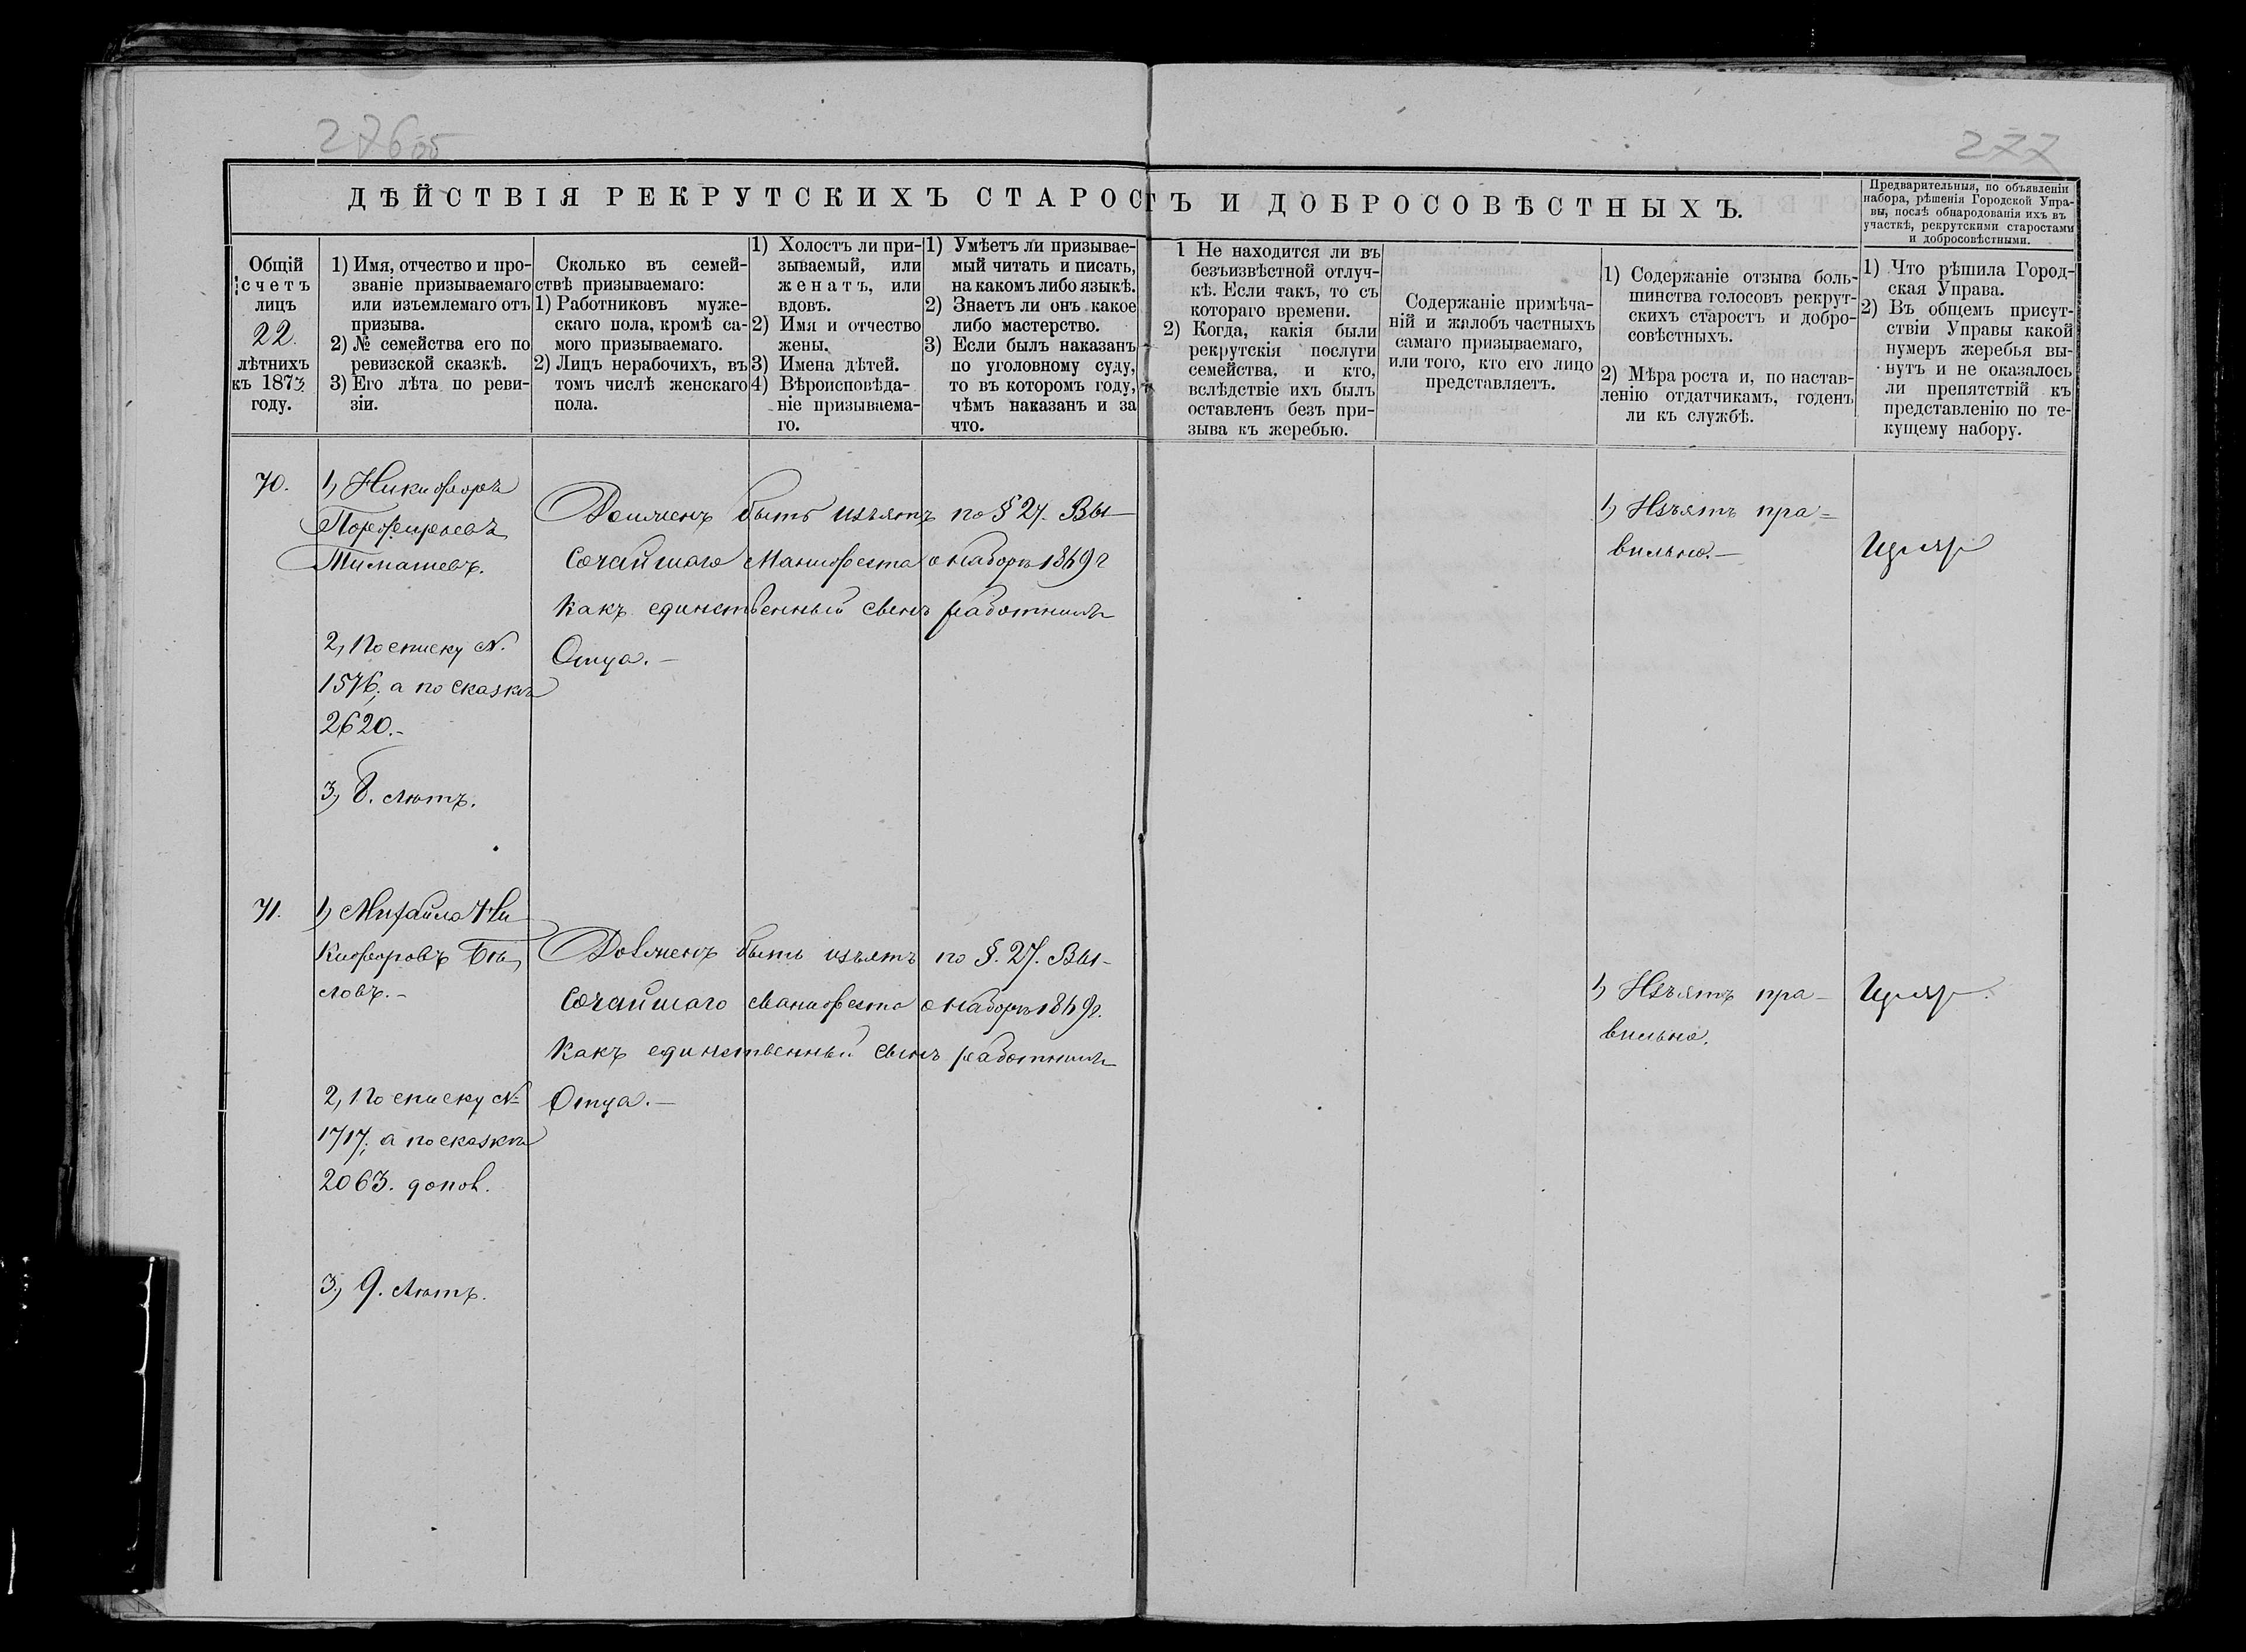 276об
277
ДѢЙСТВІЯ РЕКРУТСКИХЪ СТАРОСТЪ И ДОБРОСОВѢСТНЫХЪ.
Предварительныя, по объявленіи
набора, рѣшенія Городской Упра-
вы, послѣ обнародованія ихъ въ
участкѣ, рекрутскими старостами
и добросовѣстными.
Общій
счетъ
лицъ
22.
лѣтнихъ
къ 1873
году.
1) Имя, отчество и про-
званіе призываемаго
или изъемлемаго отъ
призыва.
2) № семейства его по
ревизской сказкѣ.
3) Его лѣта по реви-
зіи.
Сколько въ семей-
ствѣ призываемаго:
1) Работниковъ муже-
скаго пола, кромѣ са-
мого призываемаго.
2) Лицъ нерабочихъ, въ
томъ числѣ женскаго
пола.
1) Холостъ ли при-
зываемый, или
женатъ, или
вдовъ.
2) Имя и отчество
жены.
3) Имена дѣтей.
4) Вѣроисповѣда-
ніе призываема-
го.
1) Умѣетъ ли призывае-
мый читать и писать,
на какомъ либо языкѣ.
2) Знаетъ ли онъ какое
либо мастерство.
3) Если былъ наказанъ
по уголовному суду,
то въ которомъ году,
чѣмъ наказанъ и за
что.
1 Не находится ли въ
безъизвѣстной отлуч-
кѣ. Если такъ, то съ
котораго времени.
2) Когда, какія были
рекрутскія послуги
семейства, и кто,
вслѣдствіе ихъ былъ
оставленъ безъ при-
зыва къ жеребью.
Содержаніе примѣча-
ній и жалобъ частныхъ
самаго призываемаго,
или того, кто его лицо
представляетъ.
1) Содержаніе отзыва боль-
шинства голосовъ рекрут-
скихъ старостъ и добро-
совѣстныхъ.
2) Мѣра роста и, по настав-
ленію отдатчикамъ, годенъ
ли къ службѣ.
1) Что рѣшила Город-
ская Управа.
2) Въ общемъ присут-
ствіи Управы какой
нумеръ жеребья вы-
нутъ и не оказалось
ли препятствій къ
представленію по те-
кущему набору.
70.
1) Никифоръ
Порфирьевъ
Тимашевъ.
2, По списку №.
1576; а по сказкѣ
2620.-
3, 8. лѣтъ.
Долженъ быть изъятъ по § 27. Вы-
сочайшаго Манифеста о наборѣ 1869г
какъ единственный сынъ работникъ
Отца.-
1) Изъятъ пра-
вильно.-
71.
1) Михайло Ни
кифоровъ Бѣ
ловъ.-
2, По списку №
1717; а по сказкѣ
2063. допол.
3, 9. лѣтъ.
Долженъ быть изъятъ по §. 27. Вы-
сочайшаго Манифеста о наборѣ 1869г.
какъ единственный сынъ работникъ
Отца.-
1) Изъятъ пра-
вильно.